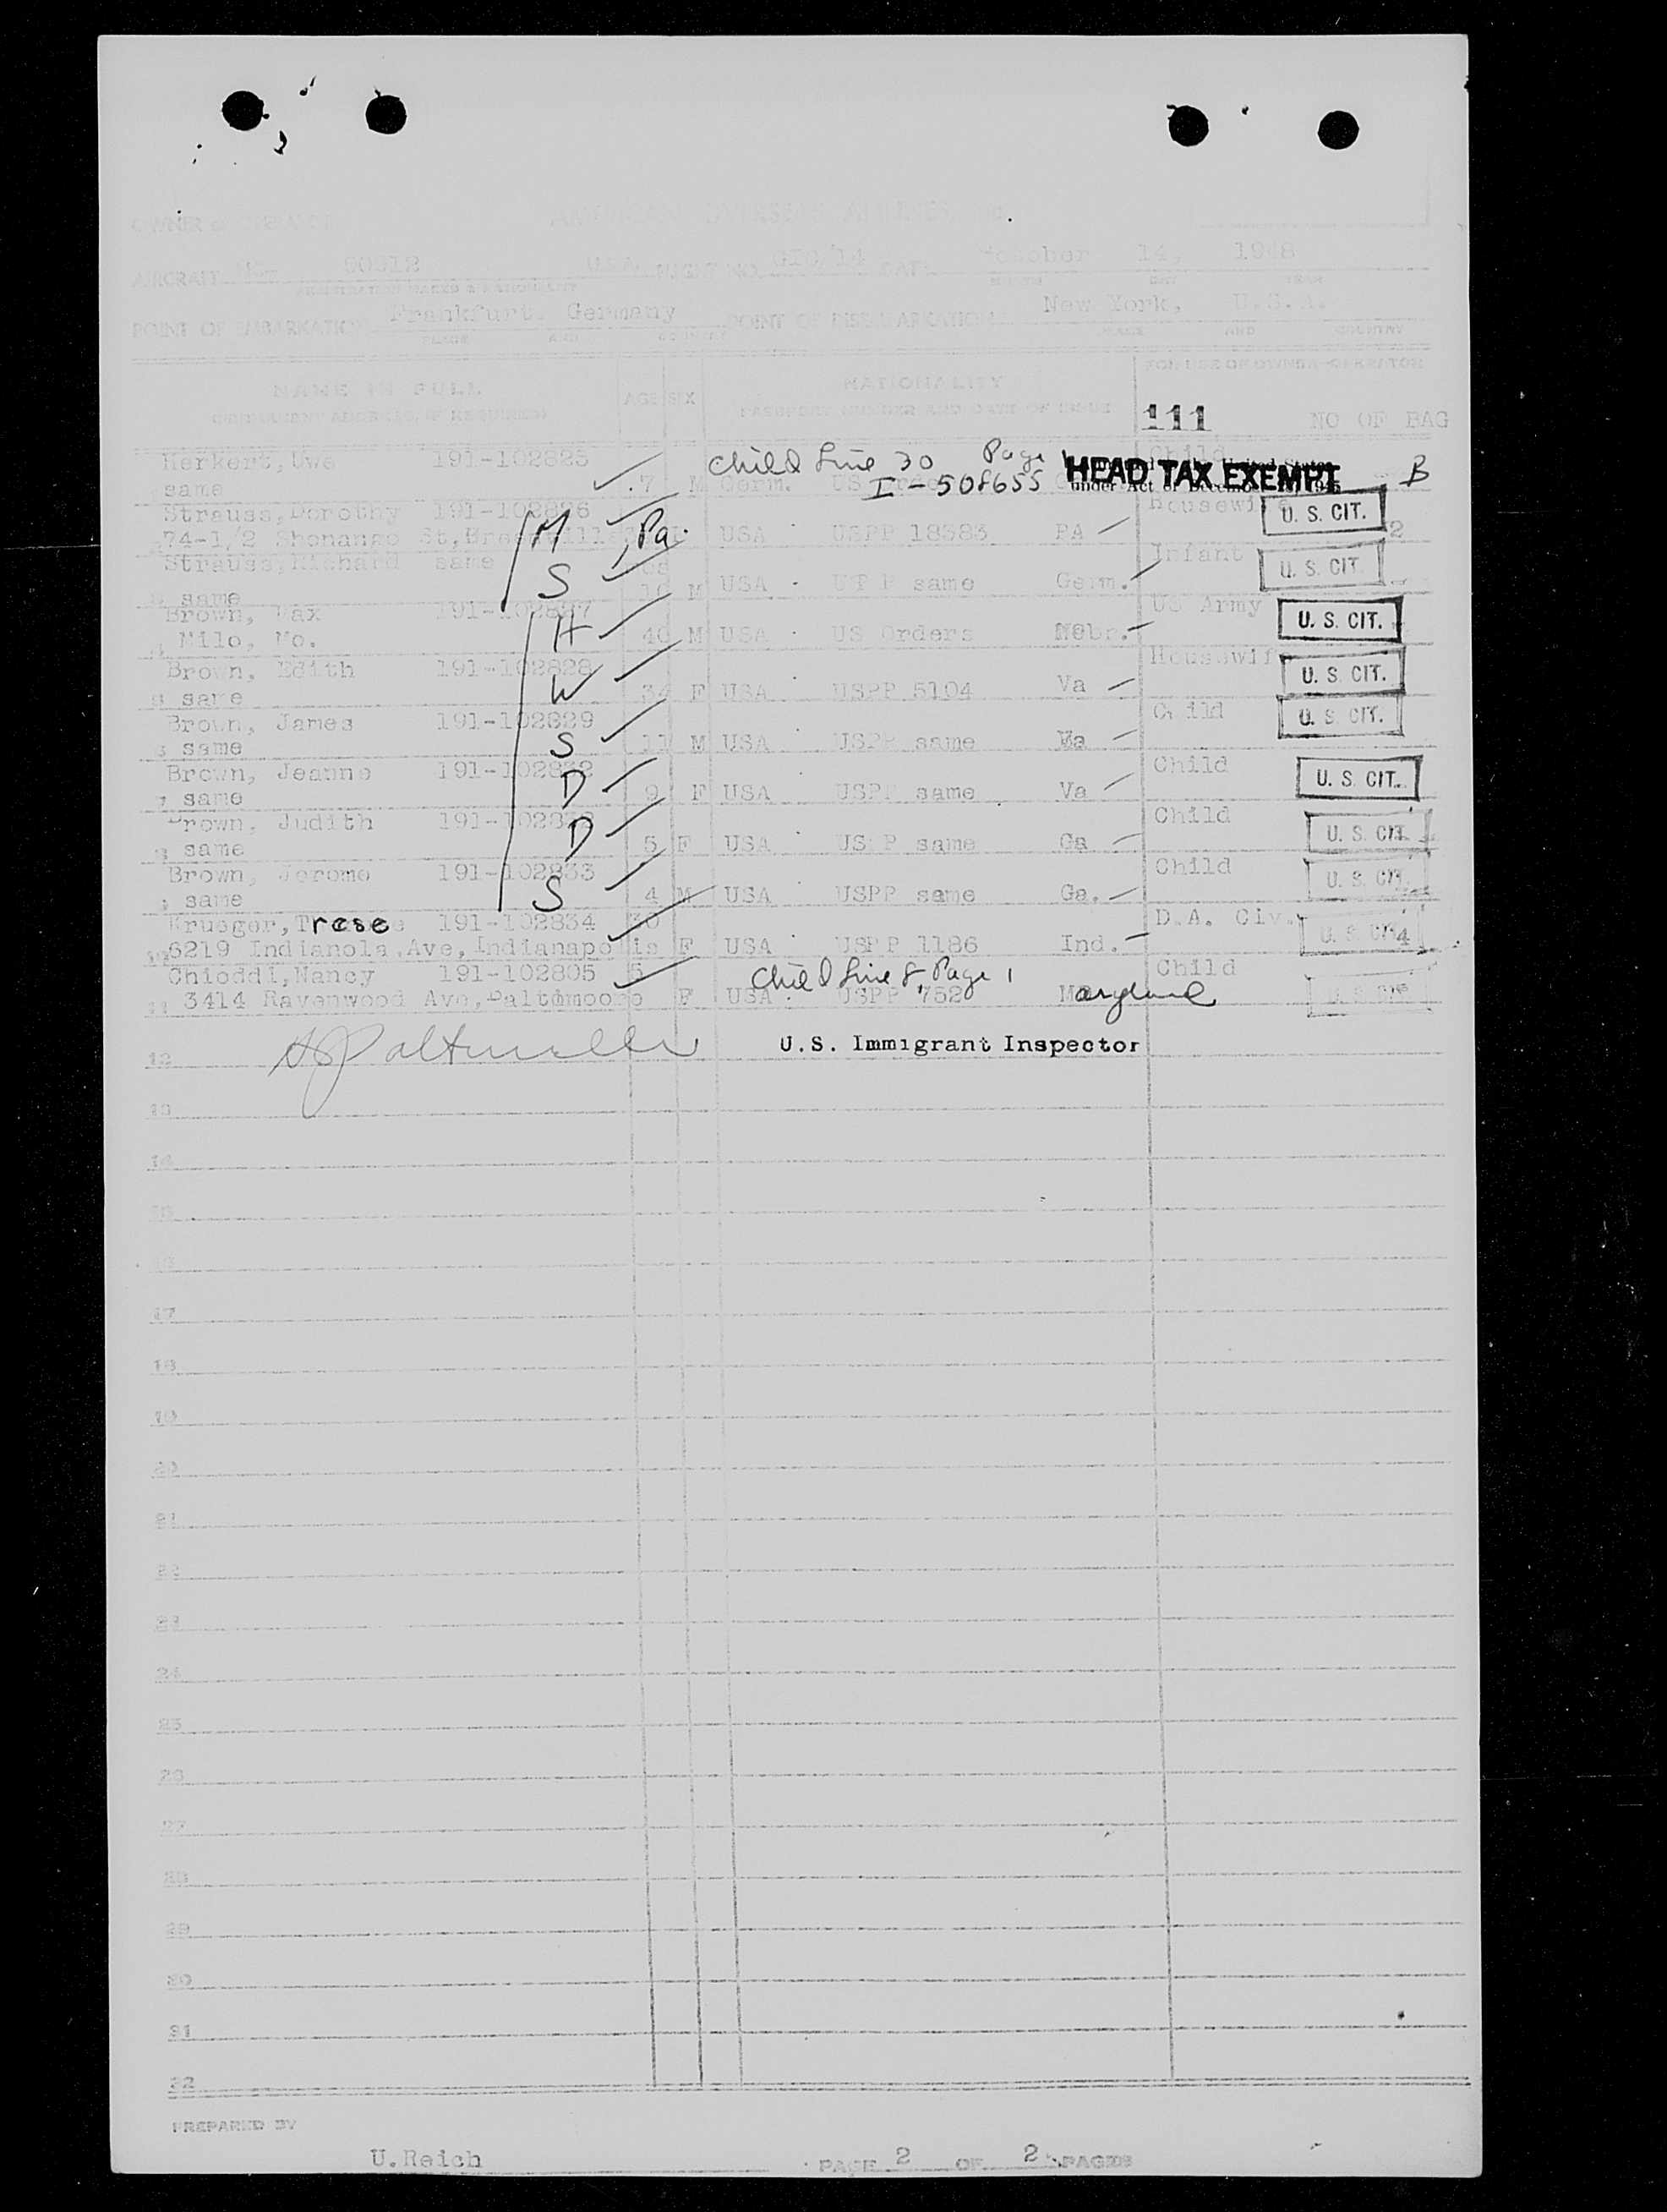 OWNER or OPERATOR AMERICAN OVERSEAS AIRLINES
AIRCRAFT 90912 USA FLIGHT NO. DATE October 14, 1948
REGISTRATION MARKS & NATIONALITY MONTH DAY YEAR
POINT OF EMBARKATION Frankfurt, Germany POINT OF DISEMBARKATION New York, U.S.A.
PLACE AND COUNTRY PLACE AND COUNTRY
NAME IN FULL AGE SEX NATIONALITY FOR USE OF OWNER-OPERATOR
PASSPORT NUMBER AND DATE OF ISSUE 111 NO OF BAG
Herkert, Uwe 191-102825 Child Line 30 Page 1 Child
same 7 M Germ. I-508655 HEAD TAX EXEMPT B
under Act of December
Strauss, Dorothy 191-102826 M Housewife U. S. CIT.
74-1/2 Shenango St, Pa. USA USPP 18383 PA 2
Strauss, Richard same S Infant U. S. CIT.
same 10 M USA same Germ.
Brown, Max 191-102827 H US Army U. S. CIT.
Milo, Mo. 40 M USA US Orders Nebr.
Brown, Edith 191-102828 W Housewife U. S. CIT.
same 34 F USA USPP 5104 Va
Brown, James 191-102829 S Child U. S. CIT.
same 11 M USA USPP same Va
Brown, Jeanne 191-102832 D Child U. S. CIT.
7 same 9 F USA USPP same Va
Brown, Judith D Child U. S. CIT.
same 5 F USA USPP same Ga
Brown, Jerome 191-102833 S Child U. S. CIT.
same 4 M USA USPP same Ga.
Krueger, Trese 191-102834 30 D.A. Civ. U. S. CIT. 4
6219 Indianola Ave, Indianapolis F USA USPP 1186 Ind.
Chioddi, Nancy 191-102805 5 Child Line 8, Page 1 Child
11 3414 Ravenwood Ave, Baltimoore F USA USPP 7520 Maryland U. S. CIT.
12 U.S. Immigrant Inspector
13
14
15
16
17
18
19
20
21
22
23
24
25
26
27
28
29
30
31
32
PREPARED BY
U.Reich PAGE 2 OF 2 PAGES